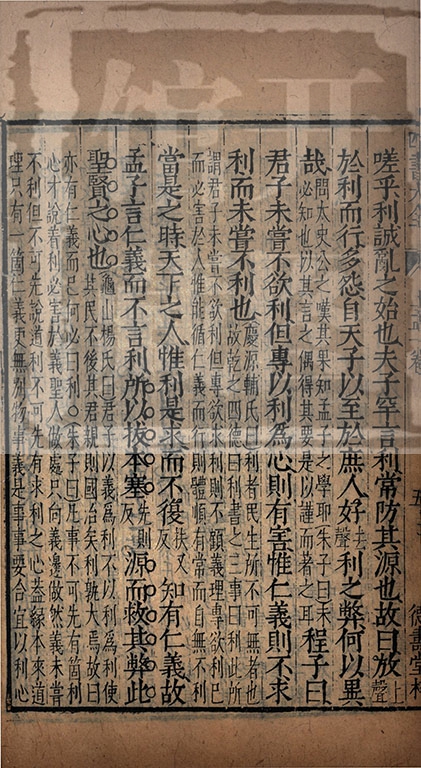 嗟乎利誠亂之始也夫子罕言利常防其源也故曰放上聲
於利而行多怨自天子以至於庶人好去聲利之弊何以異
哉問太史公之嘆其果知孟子之學耶朱子曰未必知也以其言之偶得其要是以謹而著之耳程子曰
君子未嘗不欲利但專以利為心則有害惟仁義則不求
利而未嘗不利也慶源輔氏曰利者民生所不可無者也故乾之四德曰利書之三事曰利此所
謂君子未嘗不欲利但專欲求利則不顧義理專欲利己
而必害於人惟能循仁義而行則體順有常而自無不利
當是之時天下之人惟利是求而不復扶又反知有仁義故
孟子言仁義而不言利所以拔本塞先則反源而救其弊此
聖賢之心也龜山楊氏曰君子以義為利不以利為利使其民不後其君親則國治矣利孰大焉故曰
亦有仁義而已何必曰利朱子曰凡事不可先有箇利
心才說着利必害於義聖人做處只向義邊做然義未嘗
不利但不可先說道利不可先有求利之心蓋緣本來道
理只有一箇仁義更無別物事義是事事要合宜以利心
四書大全
德壽堂梓